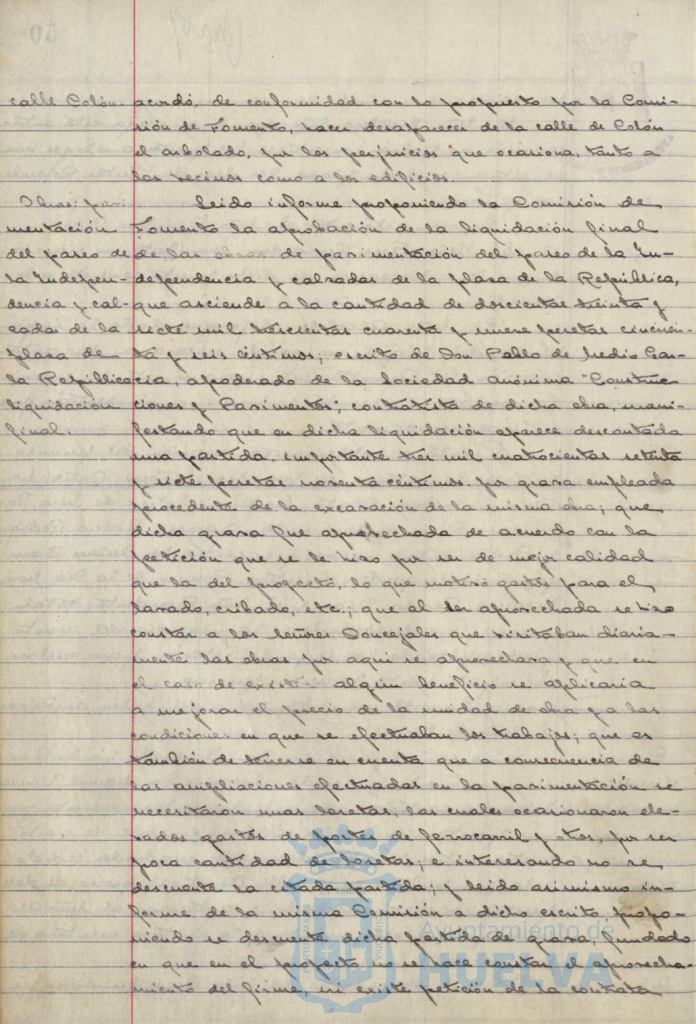 calle Colón. acordó, de conformidad con lo propuesto por la Comi-
sión de Fomento, hacer desaparecer de la calle de Colón
el arbolado, por los perjuicios que ocasiona, tanto a
los vecinos como a los edificios.
Obras: pavi- Leido informe proponiendo la Comisión de
mentación Fomento la aprobación de la liquidación final
del paseo de de las obras de pavimentación del paseo de la In-
la Indepen- dependencia y calzadas de la plaza de la República,
dencia y cal- que asciende a la cantidad de doscientas treinta y
zadas de la siete mil trescientas cuarenta y nueve pesetas cincuen-
plaza de ta y seis céntimos; escrito de Don Pablo de Medio Gar-
la República cia, apoderado de la Sociedad anónima "Construc-
liquidación ciones y Pavimentos", contratista de dicha obra, mani-
final. festando que en dicha liquidación aparece descontada
una partida, importante tres mil cuatrocientas setenta
y siete pesetas noventa céntimos, por grava empleada
procedente de la excavación de la misma obra; que
dicha grava fue aprovechada de acuerdo con la
petición que se le hizo por ser de mejor calidad
que la del proyecto, lo que motivó gastos para el
lavado, cribado, etc.; que al ser aprovechada se hizo
constar a los señores Concejales que visitaban diaria-
mente las obras por aqui se aprovechara y que en
el caso de existir algún beneficio se aplicaria
a mejorar el precio de la unidad de obra y a las
condiciones en que se efectuaban los trabajos; que es
también de tenerse en cuenta que a consecuencia de
las ampliaciones efectuadas en la pavimentación se
necesitaron unas losetas, las cuales ocasionaron ele-
vados gastos de portes de ferrocarril y otros, por ser
poca cantidad de losetas; e interesando no se
descuente la citada partida; y leido asimismo in-
forme de la misma Comisión a dicho escrito, propo-
niendo se descuente dicha partida de grava, fundado
en que en el proyecto no se hace constar el aprovecha-
miento del firme, ni existe petición de la contrata
Ayuntamiento de
HUELVA